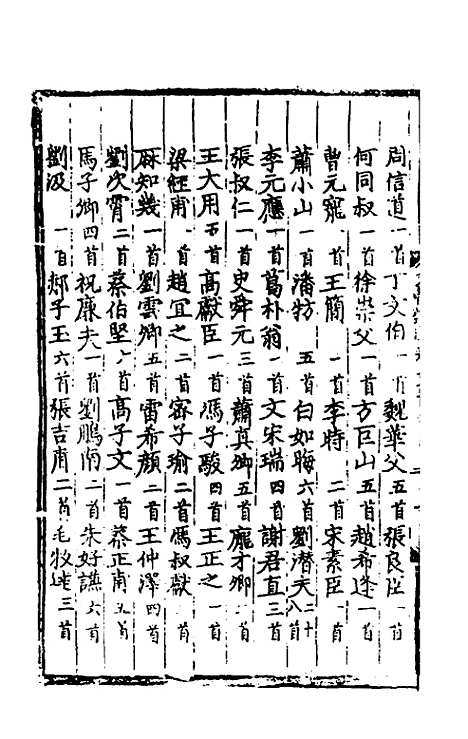 周信道一首丁文伯一首魏華父五首張良臣一首
何同叔一首徐崇父一首方巨山五首趙希逢一首
曹元寵一首王簡一首李特二首宋素臣一首
蕭小山一首潘牥五首白如晦六首劉潛夫二十八首
李元膺一首葛朴翁一首文宋瑞四首謝君直三首
張叔仁一首史舜元三首蕭真卿五首龐才卿二首
王大用五首高獻臣一首馮子駿四首王正之一首
梁經甫一首趙宜之二首密子瑜二首馮叔獻二首
麻知幾一首劉雲卿五首雷希顏二首王仲澤四首
劉次霄二首蔡伯堅七首高子文一首蔡正甫五首
馬子卿四首祝廉夫一首劉鵬南二首朱好謙六首
劉汲一首郝子玉六首張吉甫二首毛牧達三首